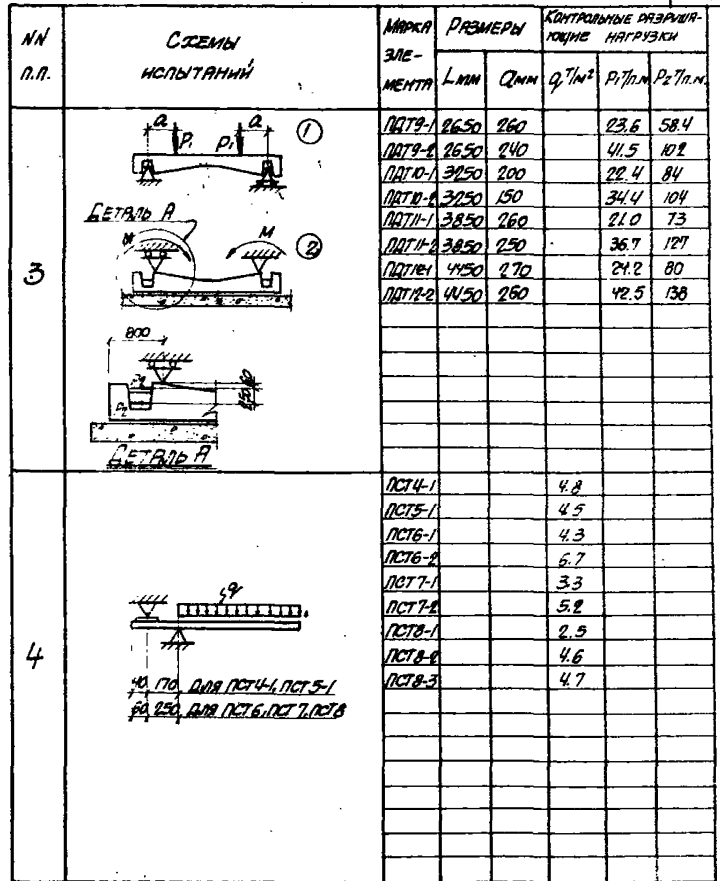 NN п.п. Схемы испытаний Марка элемента Размеры Контрольные разрушающие нагрузки
Lмм aмм q Т/м² P₁Т/п.м. P₂Т/п.м.
3
a a ①
P₁ P₁
Деталь А
M M ②
800
P₂
P₂
250 60
Деталь А
ПДТ9-1 2650 260 23.6 58.4
ПДТ9-2 2650 240 41.5 102
ПДТ10-1 3250 200 22.4 84
ПДТ10-2 3250 150 34.4 104
ПДТ11-1 3850 260 21.0 73
ПДТ11-2 3850 250 36.7 127
ПДТ12-1 4450 270 24.2 80
ПДТ12-2 4450 260 42.5 138
4
q
40 170 для ПСТ4-1, ПСТ5-1
60 250 для ПСТ6, ПСТ7, ПСТ8
ПСТ4-1 4.8
ПСТ5-1 4.5
ПСТ6-1 4.3
ПСТ6-2 6.7
ПСТ7-1 3.3
ПСТ7-2 5.2
ПСТ8-1 2.5
ПСТ8-2 4.6
ПСТ8-3 4.7